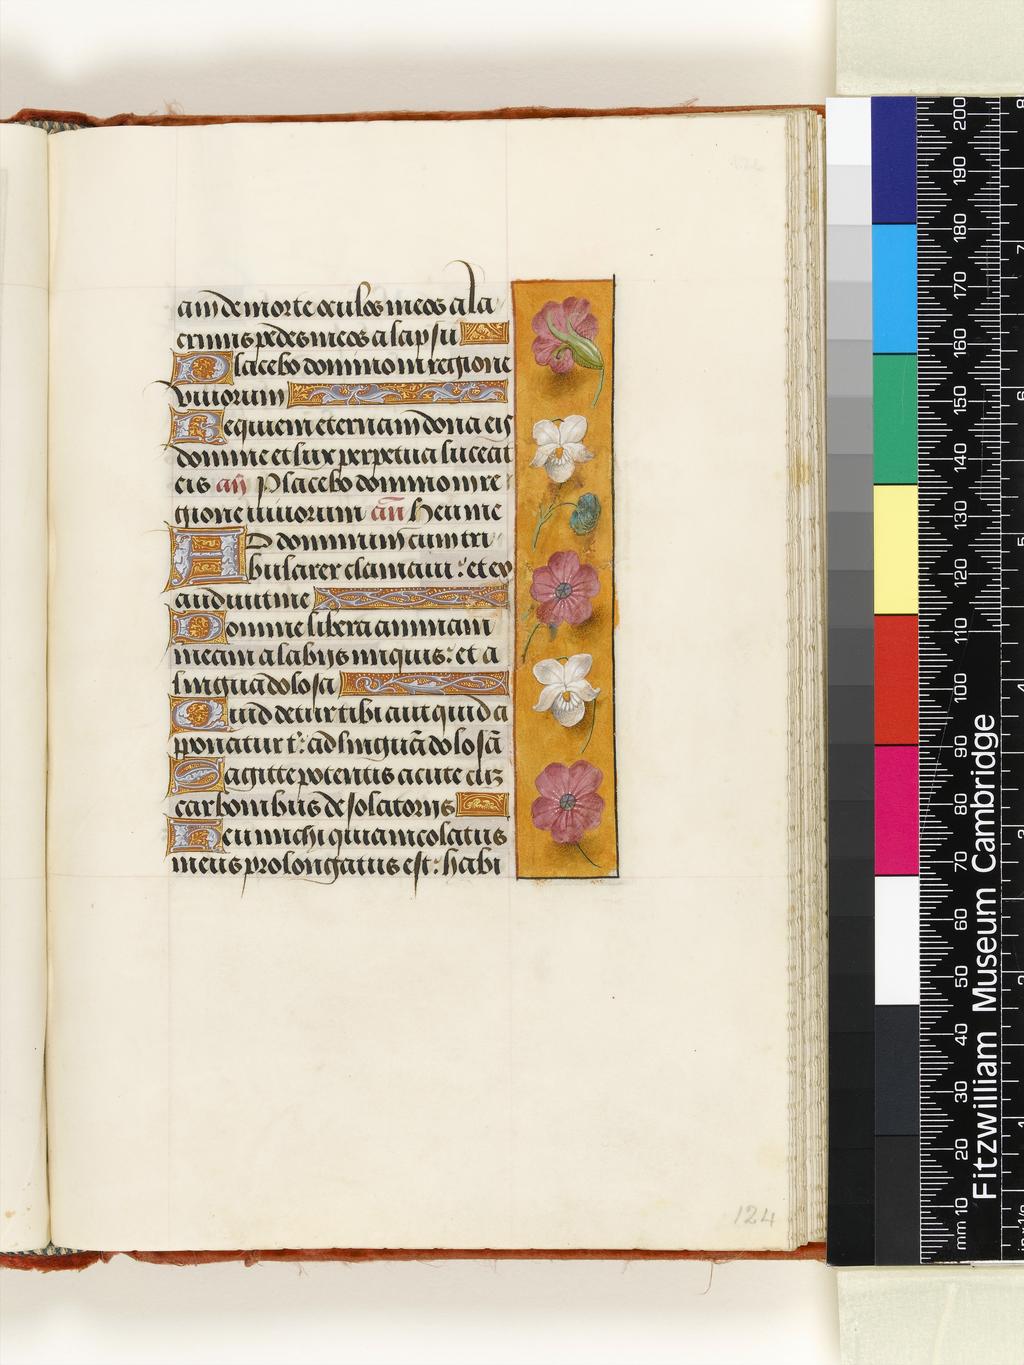 am de morte oculos meos a la
crimis pedes meos a lapsu
Placebo domino in regione
vivorum
Requiem eternam dona eis
domine et lux perpetua luceat
eis añ Placebo domino in re
gione vivorum añ Heu me
AD dominum cum tri
bularer clamavi: et ex
audivit me
Domine libera animam
meam a labijs iniquis: et a
lingua dolosa
Quid detur tibi aut quid a
pponatur t: ad linguã dolosã
Sagitte potentis acute cuz
carbonibus desolatorijs
Heu michi quia incolatus
meus prolongatus est: habi
124
Fitzwilliam Museum Cambridge
mm 10 20 30 40 50 60 70 80 90 100 110 120 130 140 150 160 170 180 190 200